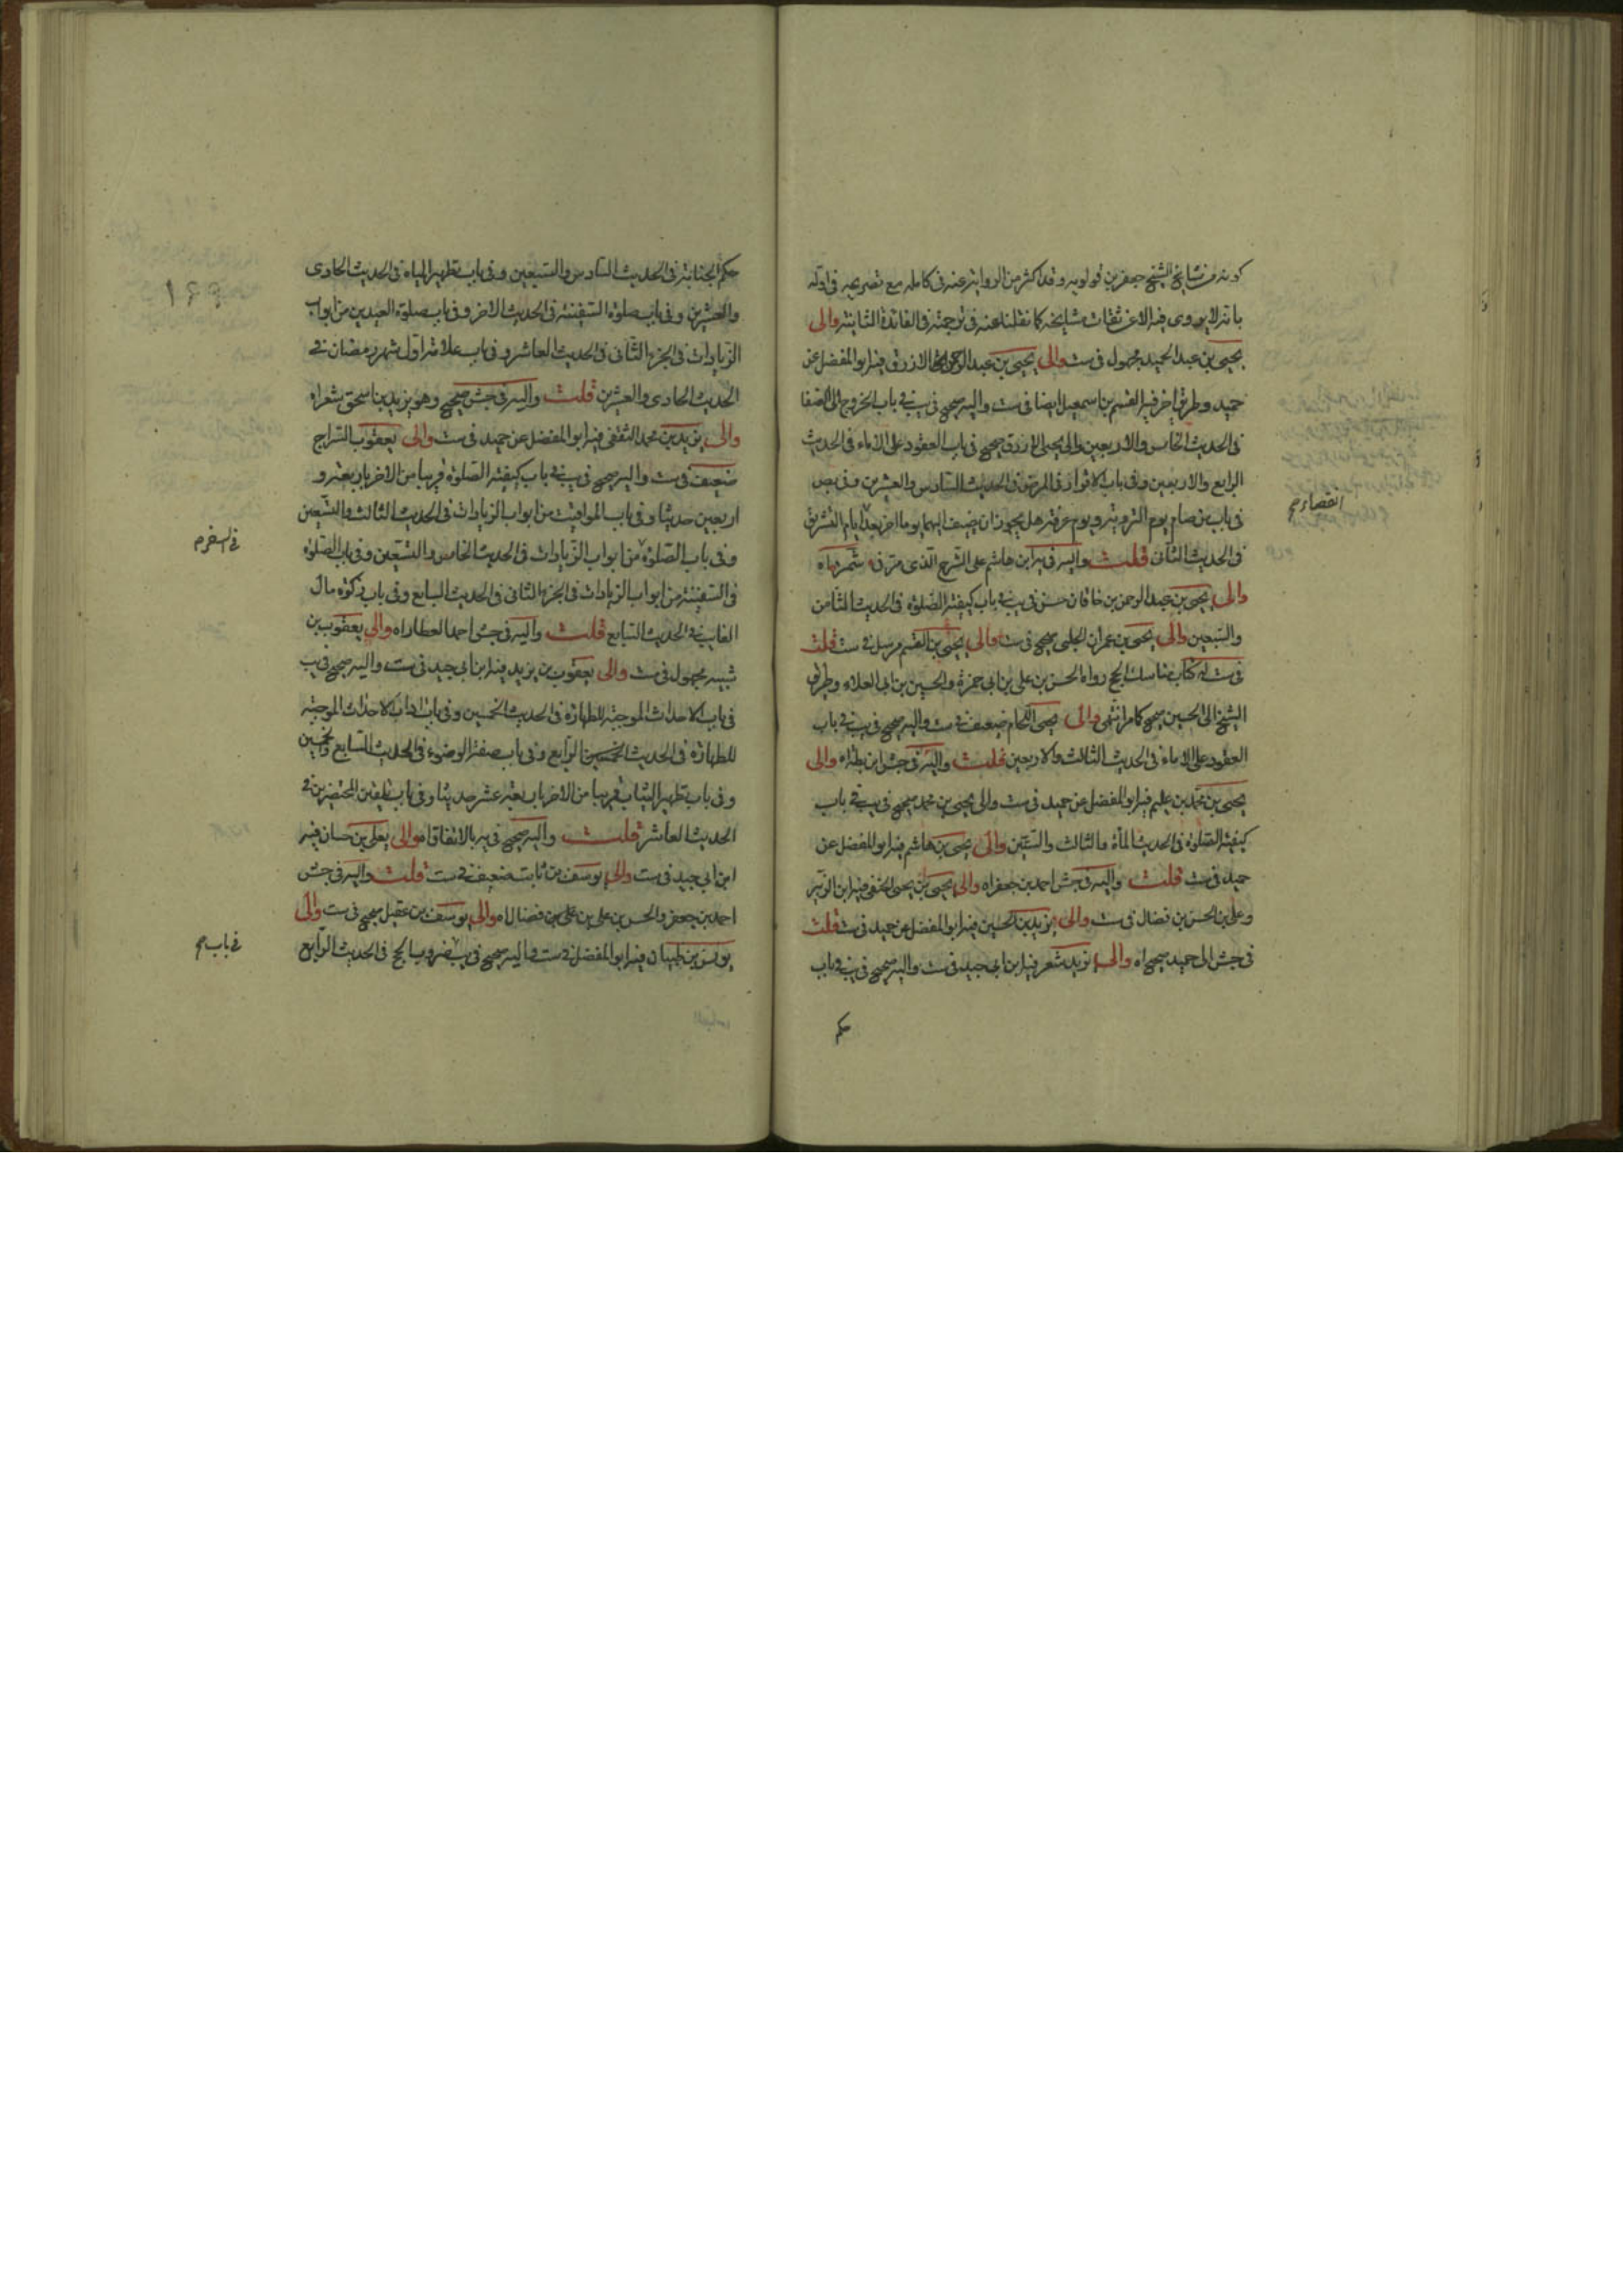 كونه من مشايخ الشيخ جعفر بن قولويه وقد اكثر من الرواية عنه فى كامله مع تصريحه فى اوله
بانه لا يروى فيه الا عن ثقات مشايخه كما نقلنا عنه فى ترجمته فى الفائدة الثانية والى
يحيى بن عبد الحميد مجهول فى ست والى يحيى بن عبد الرحمن الازرق فيه ابو المفضل عن
حميد وطريق اخر فيه القسم بن اسمعيل ايضا فى ست واليه صحيح فى يب فى باب الخروج الى الصفا
فى الحديث الخامس والاربعين والى يحيى الازرق صحيح فى باب العقود على الاماء فى الحديث
الرابع والاربعين وفى باب الاقرار فى المرض فى الحديث السادس والعشرين وفى بص
فى باب من صام يوم التروية ويوم عرفة هل يجوز ان يضيف اليهما يوما اخر بعد ايام التشريق
انقضاء صح
فى الحديث الثانى قلت واليه فى يه ابن هاشم على الشرح الذى مر فى شمر اه
والى يحيى بن عبد الرحمن بن خاقان حسن فى يب فى باب كيفية الصلوة فى الحديث الثامن
والسبعين والى يحيى بن عمران الحلبى صحيح فى ست والى يحيى بن القسم مرسل فى ست قلت
فى ست له كتاب مناسك الحج رواه الحسن بن على بن ابى حمزة والحسين بن ابى العلاء وطريق
الشيخ الى الحسين صحيح كما مر انتهى والى يحيى اللحام ضعيف فى ست واليه صحيح فى يب فى باب
العقود على الاماء فى الحديث الثالث والاربعين قلت واليه فى جش ابن بطة اه والى
يحيى بن محمد بن عليم فيه ابو المفضل عن حميد فى ست والى يحيى بن محمد صحيح فى يب فى باب
كيفية الصلوة فى الحديث المائة والثالث والستين والى يحيى بن هاشم فيه ابو المفضل عن
حميد فى ست قلت واليه فى جش احمد بن جعفر اه والى يحيى بن يحيى الحنفى فيه ابن الزبير
وعلى بن الحسن بن فضال فى ست والى يزيد بن الحسين فيه ابو المفضل عن حميد فى ست قلت
فى جش الى حميد صحيح اه والى يزيد شعر فيه ابن ابى جيد فى ست واليه صحيح فى يب فى باب
حكم
حكم الجنابة فى الحديث السادس والسبعين وفى باب تطهير المياه فى الحديث الحادى
والعشرين وفى باب صلوة السفينة فى الحديث الاخر وفى باب صلوة العيدين من ابواب
الزيادات فى الجزء الثانى فى الحديث العاشر وفى باب علامة اول شهر رمضان فى
الحديث الحادى والعشرين قلت واليه فى جش صحيح وهو يزيد بن اسحق شعر اه
والى يزيد بن محمد الثقفى فيه ابو المفضل عن حميد فى ست والى يعقوب السراج
ضعيف فى ست واليه صحيح فى يب فى باب كيفية الصلوة قريبا من الاخر باربعة و
اربعين حديثا وفى باب المواقيت من ابواب الزيادات فى الحديث الثالث والتسعين
وفى باب الصلوة من ابواب الزيادات فى الحديث الخامس والتسعين وفى باب الصلوة
فى السفر م
فى السفينة من ابواب الزيادات فى الجزء الثانى فى الحديث السابع وفى باب زكوة مال
الغايب فى الحديث السابع قلت واليه فى جش احمد العطار اه والى يعقوب بن
شيبه مجهول فى ست والى يعقوب بن يزيد فيه ابن ابى جيد فى ست واليه صحيح فى يب
فى باب الاحداث الموجبة للطهارة فى الحديث الخمسين وفى باب اداب الاحداث الموجبة
للطهارة فى الحديث الرابع وفى باب صفة الوضوء فى الحديث السابع والخمسين
وفى باب تطهير الثياب قريبا من الاخر باربعة عشر حديثا وفى باب تلقين المحتضرين فى
الحديث العاشر قلت واليه صحيح فى يه بالاتفاق اه والى يعلى بن حسان فيه
ابن ابى جيد فى ست والى يوسف بن ثابت ضعيف فى ست قلت واليه فى جش
احمد بن جعفر والحسن بن على بن على بن فضال اه والى يوسف بن عقيل صحيح فى ست والى
يونس بن ظبيان فيه ابو المفضل فى ست واليه صحيح فى يب ضروب الحج فى الحديث الرابع
فى باب صح